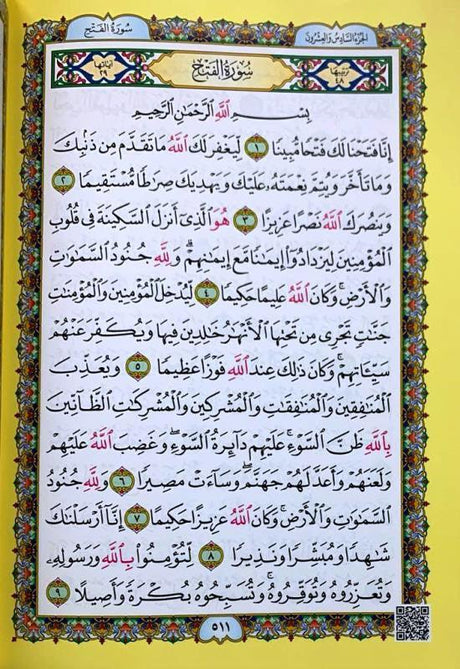 سُورَةُ الفَتْحِ
الجُزْءُ السَّادِسُ وَالعِشْرُونَ
ترتيبها ٤٨
سُورَةُ الفَتْحِ
آياتها ٢٩
بِسْمِ اللَّهِ الرَّحْمَٰنِ الرَّحِيمِ
إِنَّا فَتَحْنَا لَكَ فَتْحًا مُّبِينًا ١ لِّيَغْفِرَ لَكَ اللَّهُ مَا تَقَدَّمَ مِن ذَنۢبِكَ
وَمَا تَأَخَّرَ وَيُتِمَّ نِعْمَتَهُۥ عَلَيْكَ وَيَهْدِيَكَ صِرَٰطًا مُّسْتَقِيمًا ٢
وَيَنصُرَكَ اللَّهُ نَصْرًا عَزِيزًا ٣ هُوَ الَّذِىٓ أَنزَلَ السَّكِينَةَ فِى قُلُوبِ
الْمُؤْمِنِينَ لِيَزْدَادُوٓا۟ إِيمَٰنًا مَّعَ إِيمَٰنِهِمْ ۗ وَلِلَّهِ جُنُودُ السَّمَٰوَٰتِ
وَالْأَرْضِ ۚ وَكَانَ اللَّهُ عَلِيمًا حَكِيمًا ٤ لِّيُدْخِلَ الْمُؤْمِنِينَ وَالْمُؤْمِنَٰتِ
جَنَّٰتٍ تَجْرِى مِن تَحْتِهَا الْأَنْهَٰرُ خَٰلِدِينَ فِيهَا وَيُكَفِّرَ عَنْهُمْ
سَيِّـَٔاتِهِمْ ۚ وَكَانَ ذَٰلِكَ عِندَ اللَّهِ فَوْزًا عَظِيمًا ٥ وَيُعَذِّبَ
الْمُنَٰفِقِينَ وَالْمُنَٰفِقَٰتِ وَالْمُشْرِكِينَ وَالْمُشْرِكَٰتِ الظَّآنِّينَ
بِاللَّهِ ظَنَّ السَّوْءِ ۚ عَلَيْهِمْ دَآئِرَةُ السَّوْءِ ۖ وَغَضِبَ اللَّهُ عَلَيْهِمْ
وَلَعَنَهُمْ وَأَعَدَّ لَهُمْ جَهَنَّمَ ۖ وَسَآءَتْ مَصِيرًا ٦ وَلِلَّهِ جُنُودُ
السَّمَٰوَٰتِ وَالْأَرْضِ ۚ وَكَانَ اللَّهُ عَزِيزًا حَكِيمًا ٧ إِنَّآ أَرْسَلْنَٰكَ
شَٰهِدًا وَمُبَشِّرًا وَنَذِيرًا ٨ لِّتُؤْمِنُوا۟ بِاللَّهِ وَرَسُولِهِۦ
وَتُعَزِّرُوهُ وَتُوَقِّرُوهُ ۚ وَتُسَبِّحُوهُ بُكْرَةً وَأَصِيلًا ٩
٥١١